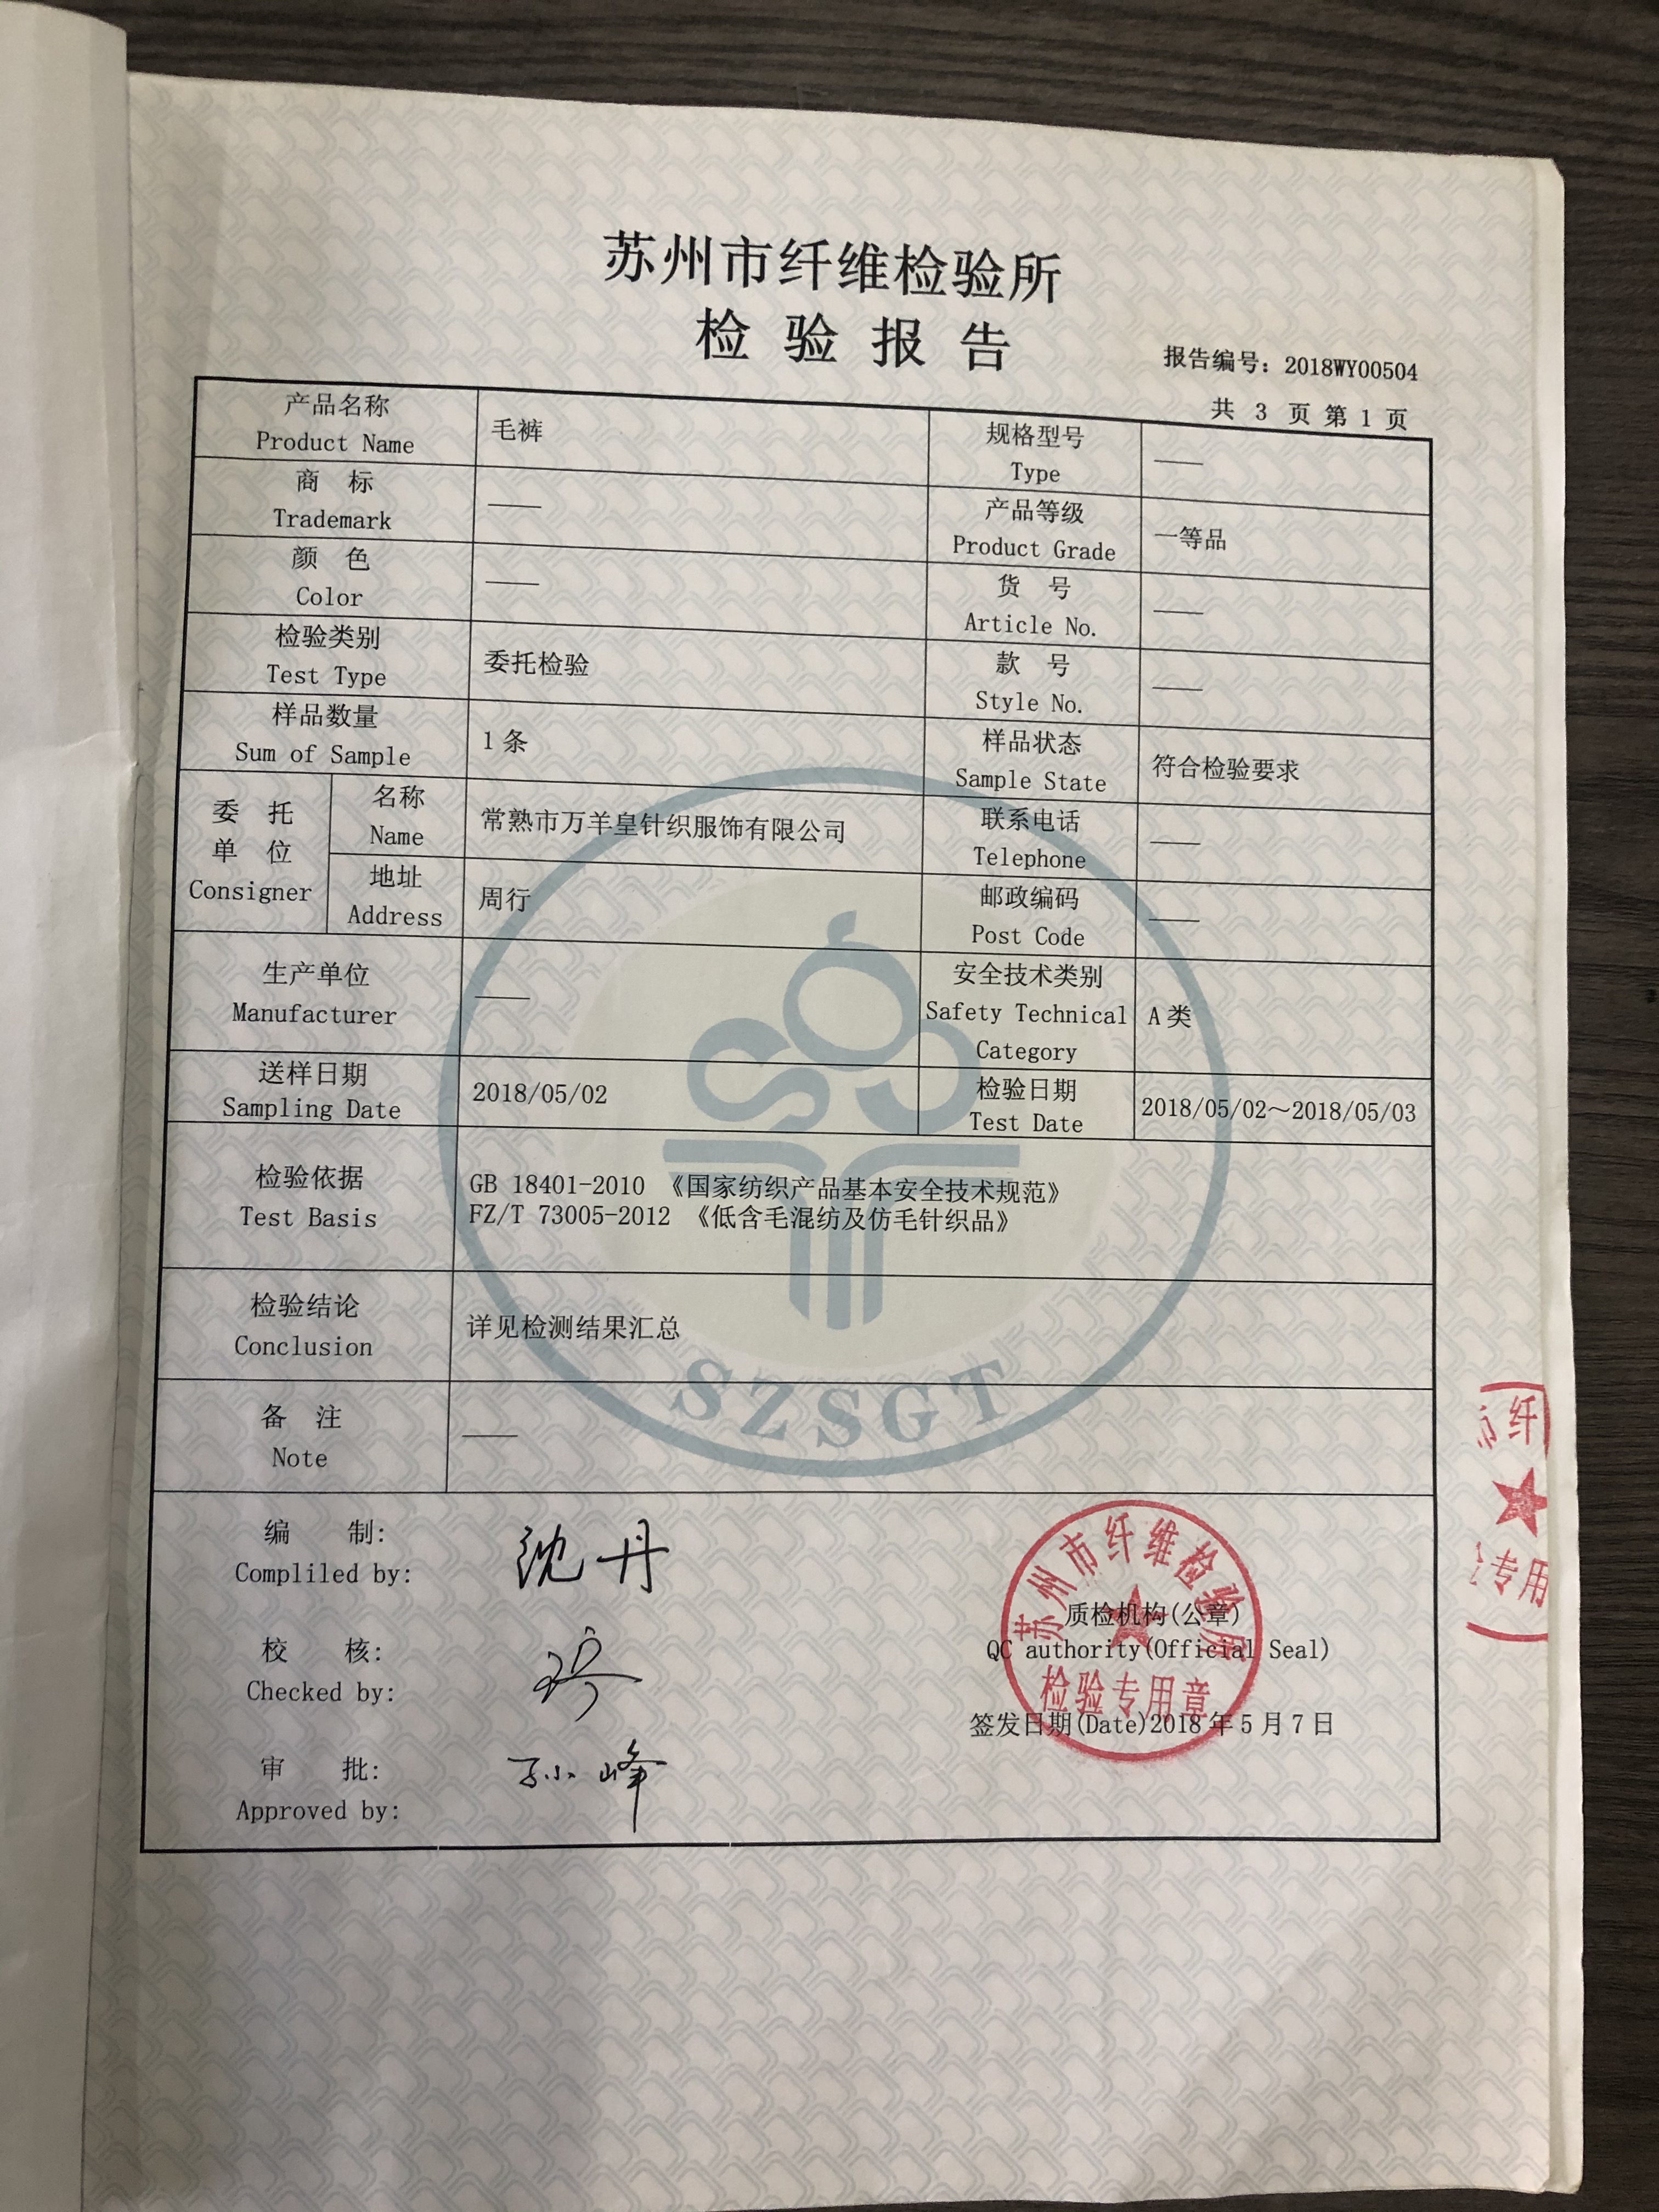 苏州市纤维检验所
检 验 报 告
报告编号: 2018WY00504
共 3 页 第 1 页
产品名称
Product Name
毛裤
规格型号
Type
——
商 标
Trademark
——
产品等级
Product Grade
一等品
颜 色
Color
——
货 号
Article No.
——
检验类别
Test Type
委托检验
款 号
Style No.
——
样品数量
Sum of Sample
1 条
样品状态
Sample State
符合检验要求
委 托
单 位
Consigner
名称
Name
常熟市万羊皇针织服饰有限公司
联系电话
Telephone
——
地址
Address
周行
邮政编码
Post Code
——
生产单位
Manufacturer
——
安全技术类别
Safety Technical
Category
A 类
送样日期
Sampling Date
2018/05/02
检验日期
Test Date
2018/05/02～2018/05/03
检验依据
Test Basis
GB 18401-2010 《国家纺织产品基本安全技术规范》
FZ/T 73005-2012 《低含毛混纺及仿毛针织品》
检验结论
Conclusion
详见检测结果汇总
备 注
Note
——
SZSGT
编 制:
Compliled by:
沈丹
校 核:
Checked by:
审 批:
Approved by:
孙峰
苏州市纤维检验所
质检机构(公章)
QC authority(Official Seal)
检验专用章
签发日期(Date)2018 年 5 月 7 日
市纤
专用